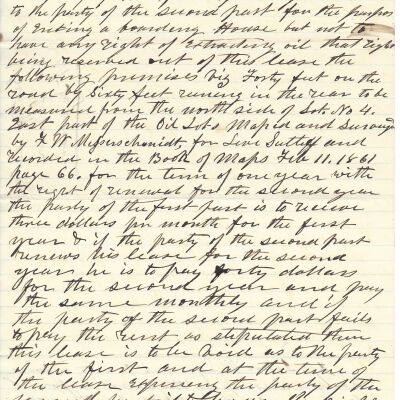 to the party of the second part for the purpos
of Ereting a boarding House but not to
have any right of Extracting oil that right
being reserved out of this lease the
following premises viz Forty feet on the
road by Sixty feet runing in the rear to be
measured from the north side of Lot No 4.
East part of the Oil Lot, Maped and Surveyed
by F. W. Messerschmidt, for Levi and
recorded in the Book of Maps Feb 11. 1861
page 66. for the term of one year with
the right of renewal for the second year
the party of the first part is to receive
three dollars per month for the first
year & if the party of the second part
renews his lease for the second
year, he is to pay forty dollars
for the second year and pay
the same monthly and if
the party of the second part fails
to pay the rent as stipulated then
this lease is to be void as to the party
of the first and at the time of
the lease Expireing the party of the